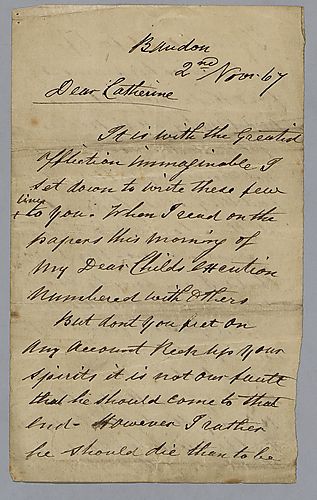 Bandon
2nd Novr. 67
Dear Catherine
It is with the Greatest
affliction immaginable I
set down to write these few
lines
+ to you. When I read on the
papers this morning of
My Dear Childs excution
Numbered with others
But dont you fret on
any account Keep up your
spirits it is not our faute
that he should come to that
end - However I rather
he should die than to be